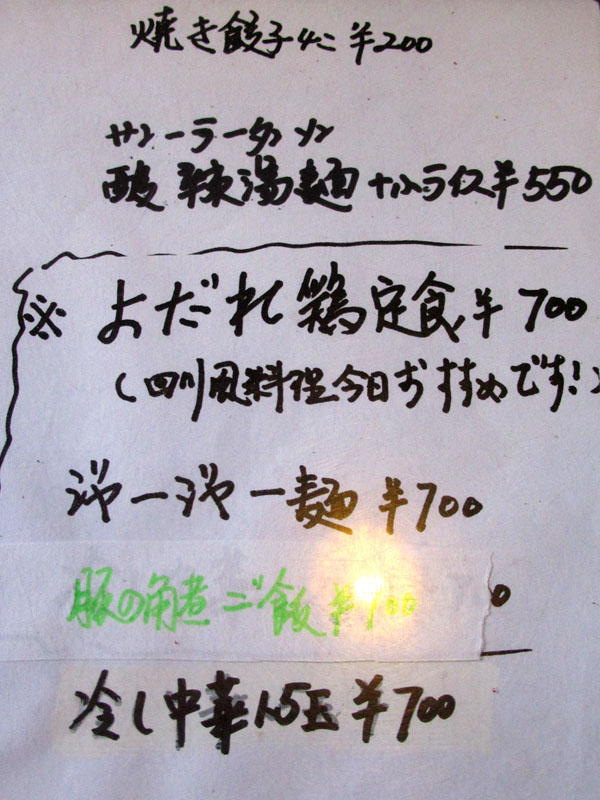 焼き餃子4こ ¥200
サンーラータンメン
酸辣湯麺+小ライス¥550
※ よだれ鶏定食¥700
(四川風料理今日おすすめです!)
ジャージャー麺 ¥700
豚の角煮ご飯¥700
冷し中華1.5玉¥700